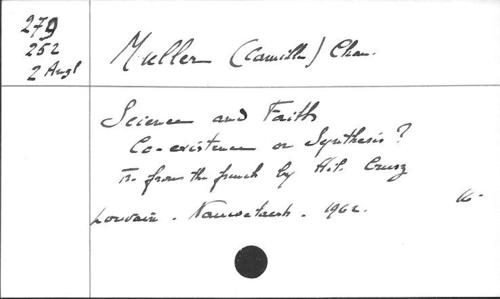 279
252
2 Angl
Muller (Camille) Chan.
Science and Faith
Co-existence or Synthesis?
Tr. from the french by H.P. Cruz
Louvain. Nauwelaerts. 1962. 16-